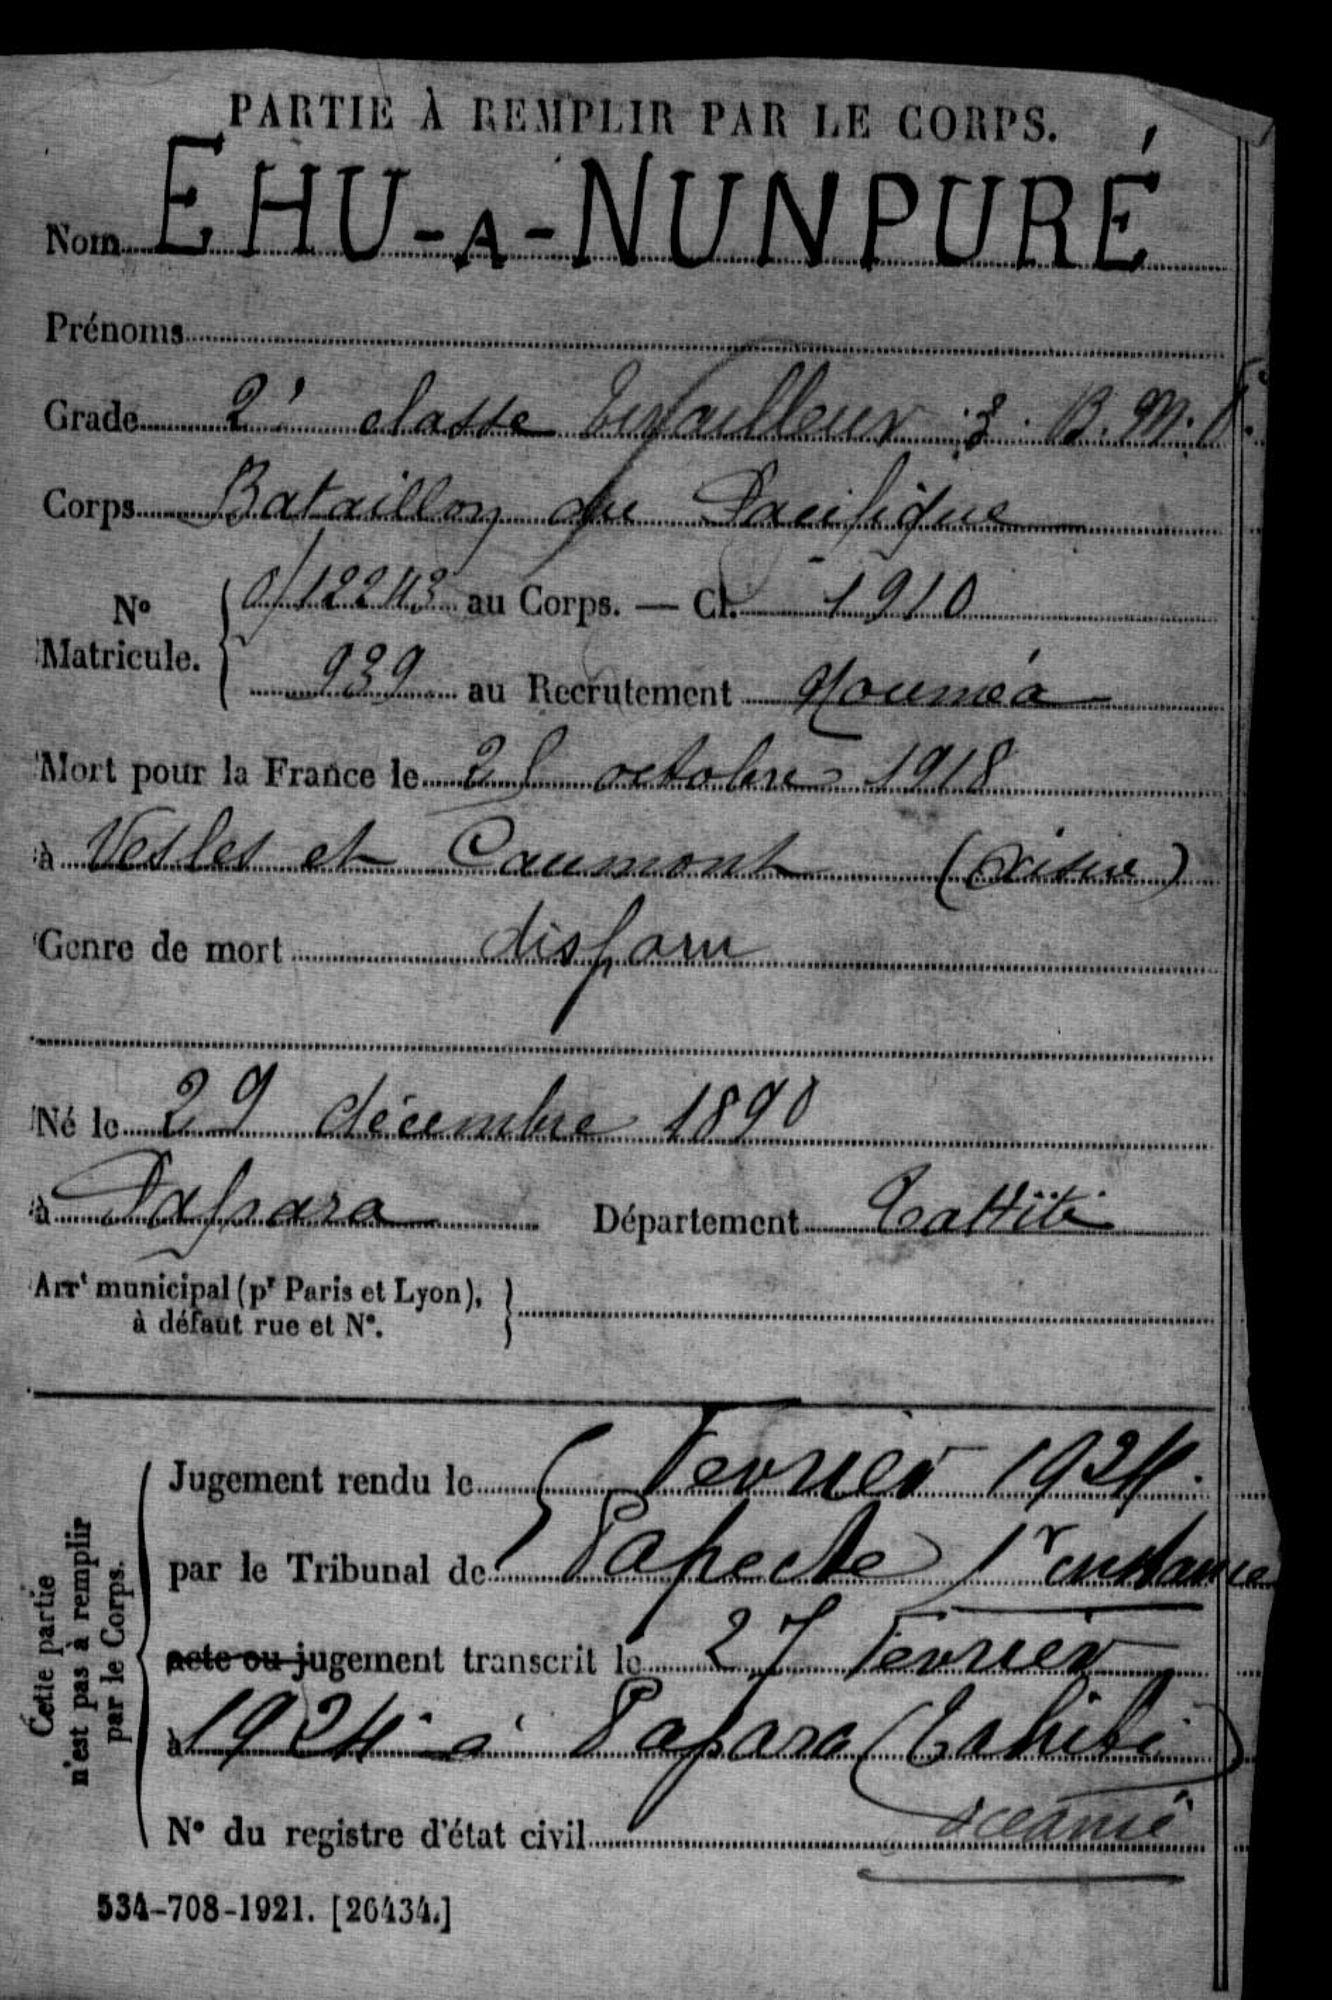 PARTIE À REMPLIR PAR LE CORPS.
Nom EHU-A-NUNPURÉ
Prénoms
Grade 2e classe tirailleur B.M.
Corps Bataillon du Pacifique
No Matricule. 0/12243 au Corps. — Cl. 1910
939 au Recrutement Nouméa
Mort pour la France le 28 octobre 1918
à Vesles et Caumont (Aisne)
Genre de mort disparu
Né le 29 décembre 1890
à Papara Département Taïti
Arrt municipal (pr Paris et Lyon),
à défaut rue et No.
Cette partie
n'est pas à remplir
par le Corps.
Jugement rendu le 5 Fevrier 1924.
par le Tribunal de Papeete 1r instance
acte ou jugement transcrit le 27 Fevrier
à 1924 à Papara (Tahiti)
No du registre d'état civil océanie
534-708-1921. [26434.]